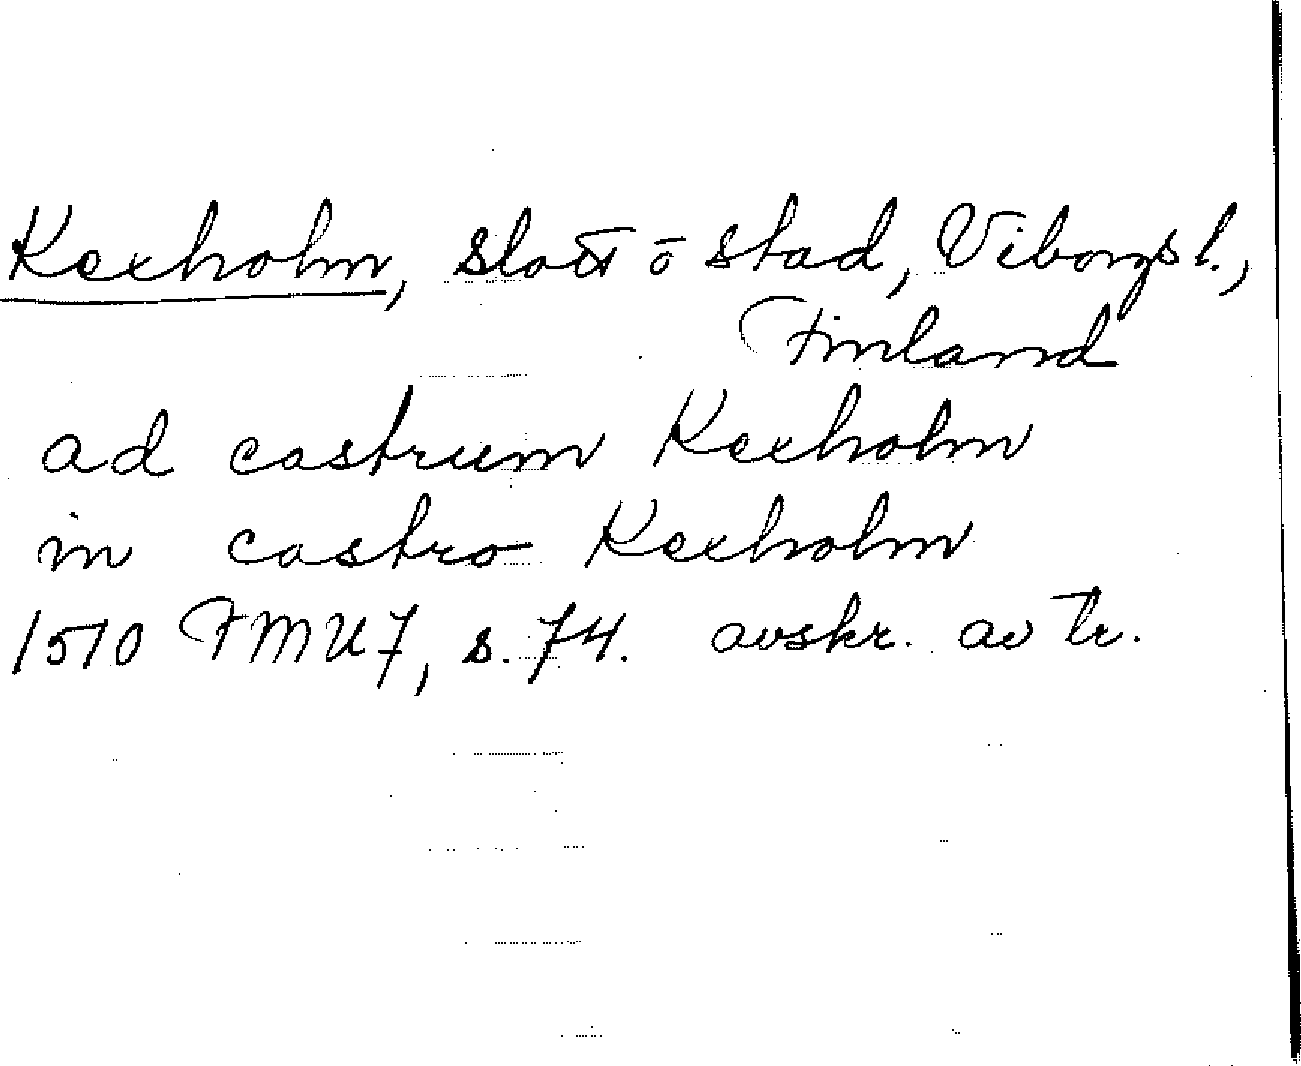 Kexholm, slott o stad, Viborgs l.,
Finland
ad castrum Kexholm
in castro Kexholm
1510 FMU 7, s. 74. avskr. av tr.